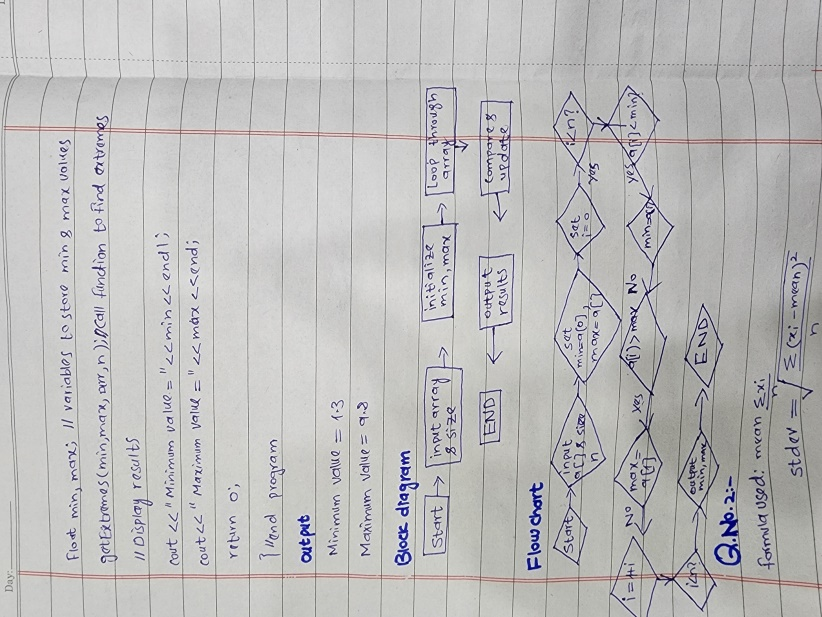 Day:
Float min, max; // variables to store min & max values
getExtremes(min,max, arr,n); // Call function to find extremes
// Display results
cout << "Minimum value = " << min << endl;
cout << " Maximum value = " << max < send;
return 0;
} // end program
output
Minimum value = 1.3
Maximum value = 9.8
Block diagram
Start → input array & size → initialize min, max → Loop through array
END ← output results ← compare & update
Flow chart
Start
input a[] & size n
set min=a[0], max=a[]
set i=0
i<n?
yes
i = +i
No
max= a[i]
yes
a[i] > max
No
min=a[i]
yes
a[i] < min?
i<n?
output min, max
END
Q.No.2:-
formula used: mean Σxi/n
stdev = √ Σ (xi - mean)² / n